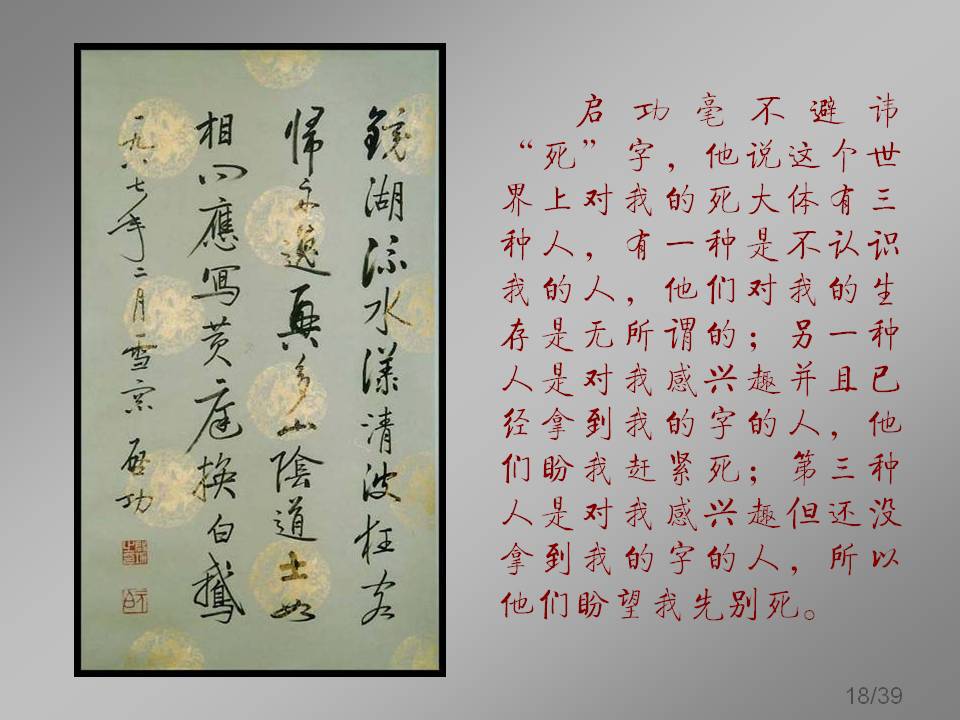 鏡湖流水漾清波狂客
歸舟逸興多山陰道士如
相見應寫黃庭換白鵝
一九八七年二月雪窗啟功
启功毫不避讳
“死”字，他说这个世
界上对我的死大体有三
种人，有一种是不认识
我的人，他们对我的生
存是无所谓的；另一种
人是对我感兴趣并且已
经拿到我的字的人，他
们盼我赶紧死；第三种
人是对我感兴趣但还没
拿到我的字的人，所以
他们盼望我先别死。
18/39